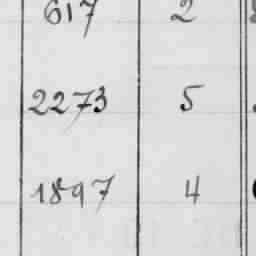 617 2
2273 5
1897 4